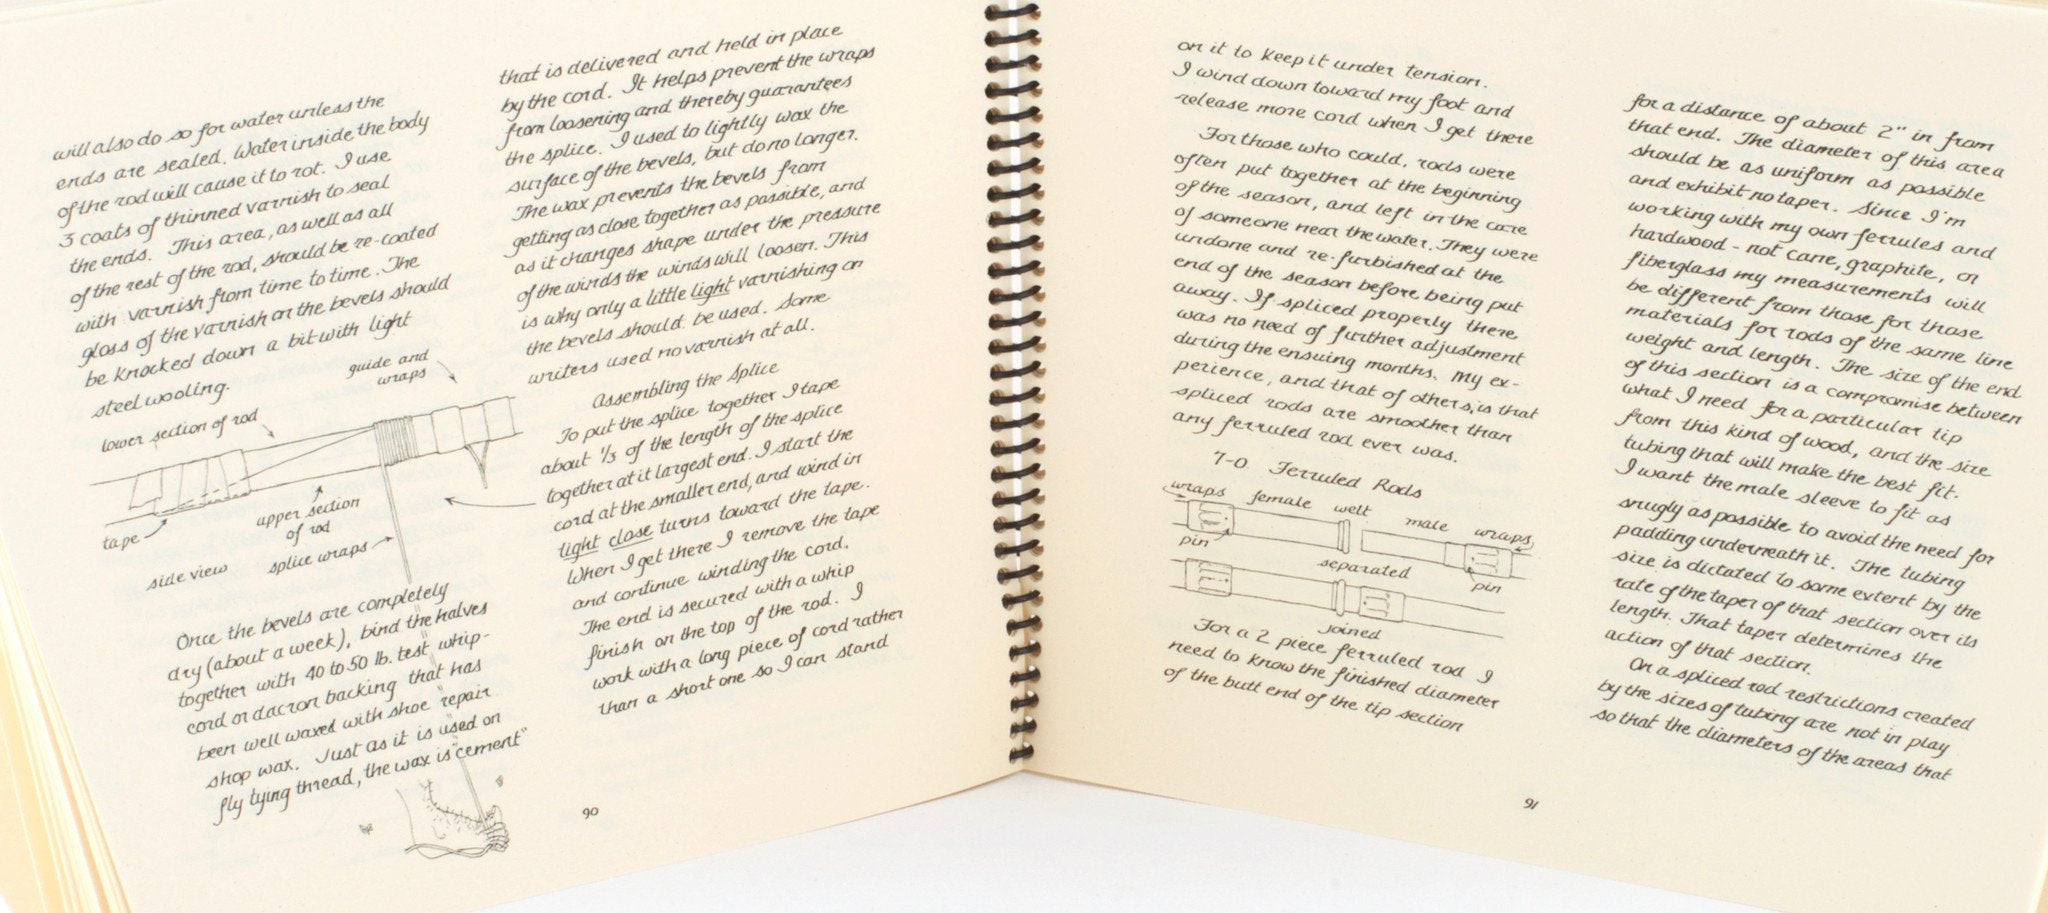 will also do so for water unless the
ends are sealed. Water inside the body
of the rod will cause it to rot. I use
3 coats of thinned varnish to seal
the ends. This area, as well as all
of the rest of the rod, should be re-coated
with varnish from time to time. The
gloss of the varnish on the bevels should
be knocked down a bit with light
steel wooling.
guide and
wraps
lower section of rod
tape
upper section
of rod
side view
splice wraps
Once the bevels are completely
dry (about a week), bind the halves
together with 40 to 50 lb. test whip-
cord or dacron backing that has
been well waxed with shoe repair
shop wax. Just as it is used on
fly tying thread, the wax is "cement"
that is delivered and held in place
by the cord. It helps prevent the wraps
from loosening and thereby guarantees
the splice. I used to lightly wax the
surface of the bevels, but do no longer.
The wax prevents the bevels from
getting as close together as possible, and
as it changes shape under the pressure
of the winds the winds will loosen. This
is why only a little light varnishing on
the bevels should be used. Some
writers used no varnish at all.
Assembling the Splice
To put the splice together I tape
about 1/3 of the length of the splice
together at it largest end. I start the
cord at the smaller end, and wind in
tight close turns toward the tape.
When I get there I remove the tape
and continue winding the cord.
The end is secured with a whip
finish on the top of the rod. I
work with a long piece of cord rather
than a short one so I can stand
90
on it to keep it under tension.
I wind down toward my foot and
release more cord when I get there
For those who could, rods were
often put together at the beginning
of the season, and left in the care
of someone near the water. They were
undone and re-furbished at the
end of the season before being put
away. If spliced properly there
was no need of further adjustment
during the ensuing months. My ex-
perience, and that of others, is that
spliced rods are smoother than
any ferruled rod ever was.
7-0. Ferruled Rods
wraps female welt male wraps
pin separated pin
joined
For a 2 piece ferruled rod I
need to know the finished diameter
of the butt end of the tip section
for a distance of about 2" in from
that end. The diameter of this area
should be as uniform as possible
and exhibit no taper. Since I'm
working with my own ferrules and
hardwood - not cane, graphite, or
fiberglass my measurements will
be different from those for those
materials for rods of the same line
weight and length. The size of the end
of this section is a compromise between
what I need for a particular tip
from this kind of wood, and the size
tubing that will make the best fit.
I want the male sleeve to fit as
snugly as possible to avoid the need for
padding underneath it. The tubing
size is dictated to some extent by the
rate of the taper of that section over its
length. That taper determines the
action of that section.
On a spliced rod restrictions created
by the sizes of tubing are not in play
so that the diameters of the areas that
91